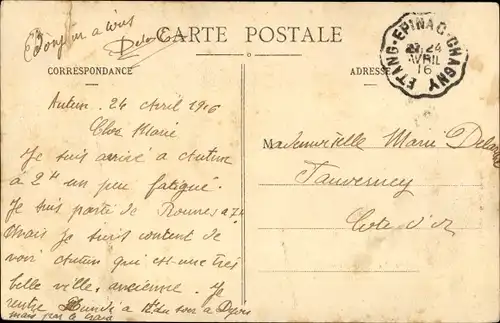 Bonjour a tous
CARTE POSTALE
CORRESPONDANCE
ADRESSE
ETANG-EPINAC-CHAGNY
24
AVRIL
16
Autun. 24 Avril 1916
Cher Marie
Je suis arrivé a Autun
à 2h un peu fatigué.
Je suis parti de a 7h
Mais je suis content de
voir Autun qui est une très
belle ville, ancienne. Je
rentre Lundi a 12h du soir a Dijon
mais pas le
Mademoiselle Marie
Tauverney
Cote d'or